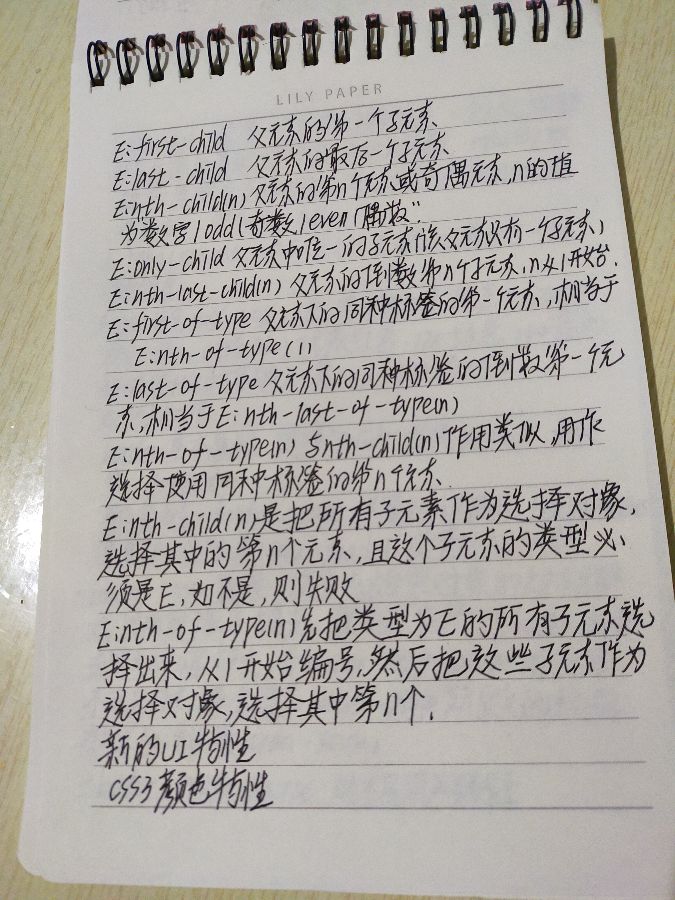 LILY PAPER
E:first-child 父元素的第一个子元素
E:last-child 父元素的最后一个子元素
E:nth-child(n) 父元素的第n个元素或奇偶元素,n的值
为"数字|odd(奇数)even(偶数"
E:only-child 父元素中唯一的子元素(该父元素只有一个子元素)
E:nth-last-child(n) 父元素的倒数第n个子元素,n从1开始.
E:first-of-type 父元素下的同种标签的第一个元素,相当于
E:nth-of-type(1)
E:last-of-type 父元素下的同种标签的倒数第一个元
素,相当于E:nth-last-of-type(n)
E:nth-of-type(n) 与nth-child(n)作用类似,用作
选择使用同种标签的第n个元素.
E:nth-child(n)是把所有子元素作为选择对象,
选择其中的第n个元素,且这个子元素的类型必
须是E,如不是,则失败
E:nth-of-type(n)先把类型为E的所有子元素选
择出来,从1开始编号,然后把这些子元素作为
选择对象,选择其中第n个.
新的UI特性
CSS3颜色特性